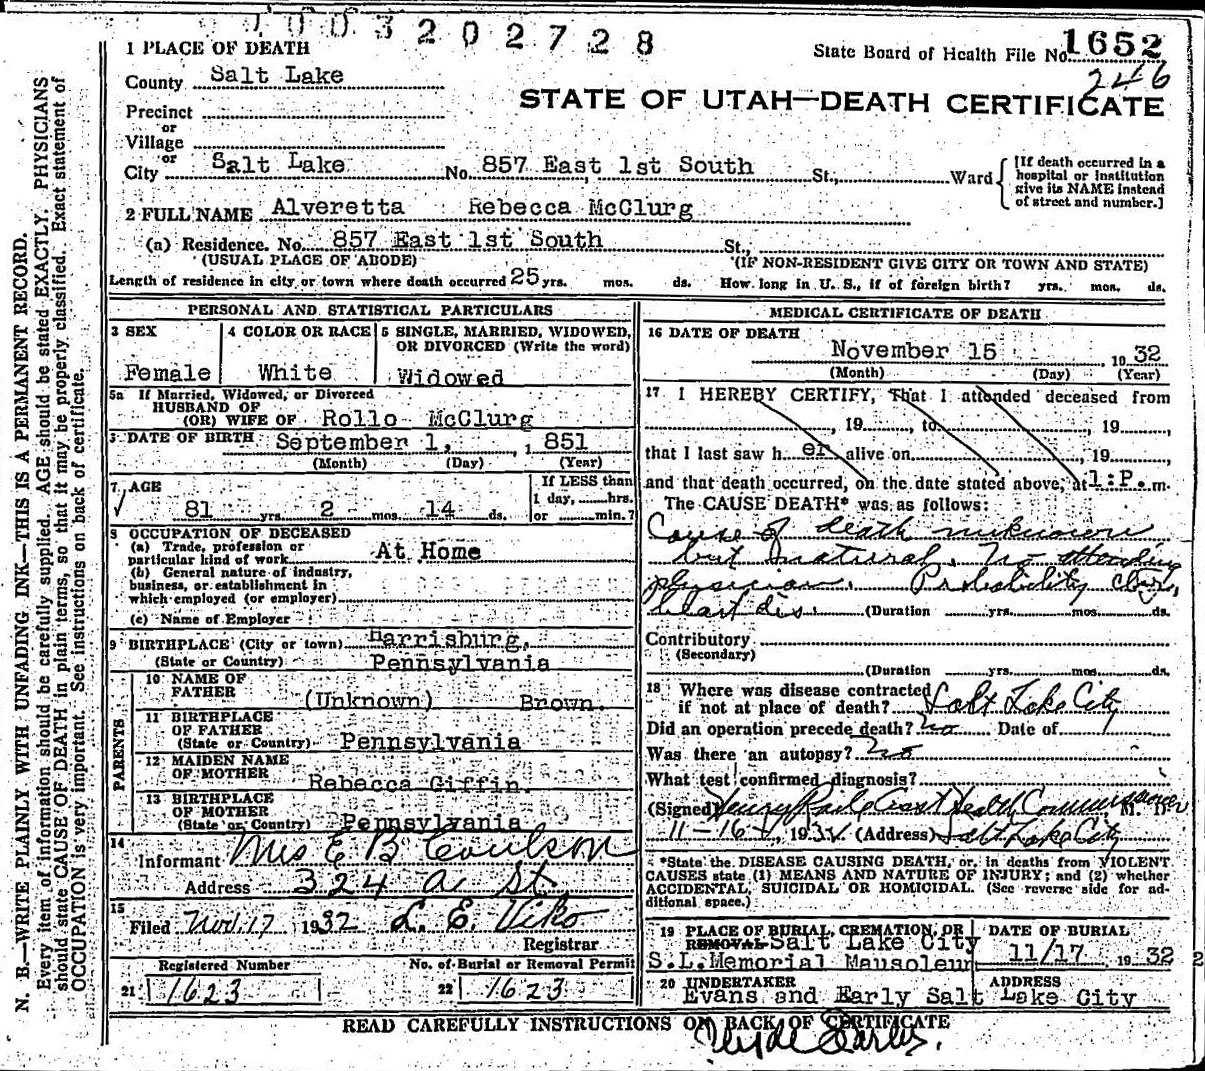 003202728
1 PLACE OF DEATH
State Board of Health File No. 1652
246
County Salt Lake
STATE OF UTAH—DEATH CERTIFICATE
Precinct
or
Village
or
City Salt Lake No. 857 East 1st South St., Ward
[If death occurred in a hospital or institution give its NAME instead of street and number.]
2 FULL NAME Alveretta Rebecca McClurg
(a) Residence. No. 857 East 1st South St.,
(USUAL PLACE OF ABODE) (IF NON-RESIDENT GIVE CITY OR TOWN AND STATE)
Length of residence in city or town where death occurred 25 yrs. mos. ds. How long in U. S., if of foreign birth? yrs. mos. ds.
PERSONAL AND STATISTICAL PARTICULARS
3 SEX
Female
4 COLOR OR RACE
White
5 SINGLE, MARRIED, WIDOWED, OR DIVORCED (Write the word)
Widowed
5a If Married, Widowed, or Divorced
HUSBAND OF
(OR) WIFE OF Rollo McClurg
DATE OF BIRTH September 1, 1 851
(Month) (Day) (Year)
7 AGE
81 yrs. 2 mos. 14 ds.
If LESS than
1 day, hrs.
or min.?
8 OCCUPATION OF DECEASED
(a) Trade, profession or
particular kind of work At Home
(b) General nature of industry,
business, or establishment in
which employed (or employer)
(c) Name of Employer
9 BIRTHPLACE (City or town) Harrisburg,
(State or Country) Pennsylvania
PARENTS
10 NAME OF
FATHER (Unknown) Brown.
11 BIRTHPLACE
OF FATHER
(State or Country) Pennsylvania
12 MAIDEN NAME
OF MOTHER Rebecca Giffin.
13 BIRTHPLACE
OF MOTHER
(State or Country) Pennsylvania
14
Informant Mrs E B Coulson
Address 324 A St
15
Filed Nov. 17 1932 L. E. Viko
Registrar
Registered Number No. of Burial or Removal Permit
21 1623 22 1623
MEDICAL CERTIFICATE OF DEATH
16 DATE OF DEATH
November 15 1932
(Month) (Day) (Year)
17 I HEREBY CERTIFY, That I attended deceased from
, 19 , to , 19 ,
that I last saw h er alive on , 19 ,
and that death occurred, on the date stated above, at 1:P. m.
The CAUSE DEATH* was as follows:
Cause of death unknown
but natural. No attending
physician. Probability
heart dis. (Duration yrs. mos. ds.
Contributory
(Secondary)
(Duration yrs. mos. ds.
18 Where was disease contracted
if not at place of death? Salt Lake City
Did an operation precede death? no Date of
Was there an autopsy? no
What test confirmed diagnosis?
(Signed) Health Commissioner M. D.
11-16, 1932 (Address) Salt Lake City
*State the DISEASE CAUSING DEATH, or, in deaths from VIOLENT
CAUSES state (1) MEANS AND NATURE OF INJURY; and (2) whether
ACCIDENTAL, SUICIDAL OR HOMICIDAL. (See reverse side for ad-
ditional space.)
19 PLACE OF BURIAL, CREMATION, OR
REMOVAL Salt Lake City
S.L.Memorial Mausoleum
DATE OF BURIAL
11/17 1932
2
20 UNDERTAKER
Evans and Early Salt Lake City
ADDRESS
READ CAREFULLY INSTRUCTIONS ON BACK OF CERTIFICATE
N. B.—WRITE PLAINLY WITH UNFADING INK—THIS IS A PERMANENT RECORD.
Every item of information should be carefully supplied. AGE should be stated EXACTLY. PHYSICIANS
should state CAUSE OF DEATH in plain terms, so that it may be properly classified. Exact statement of
OCCUPATION is very important. See instructions on back of certificate.